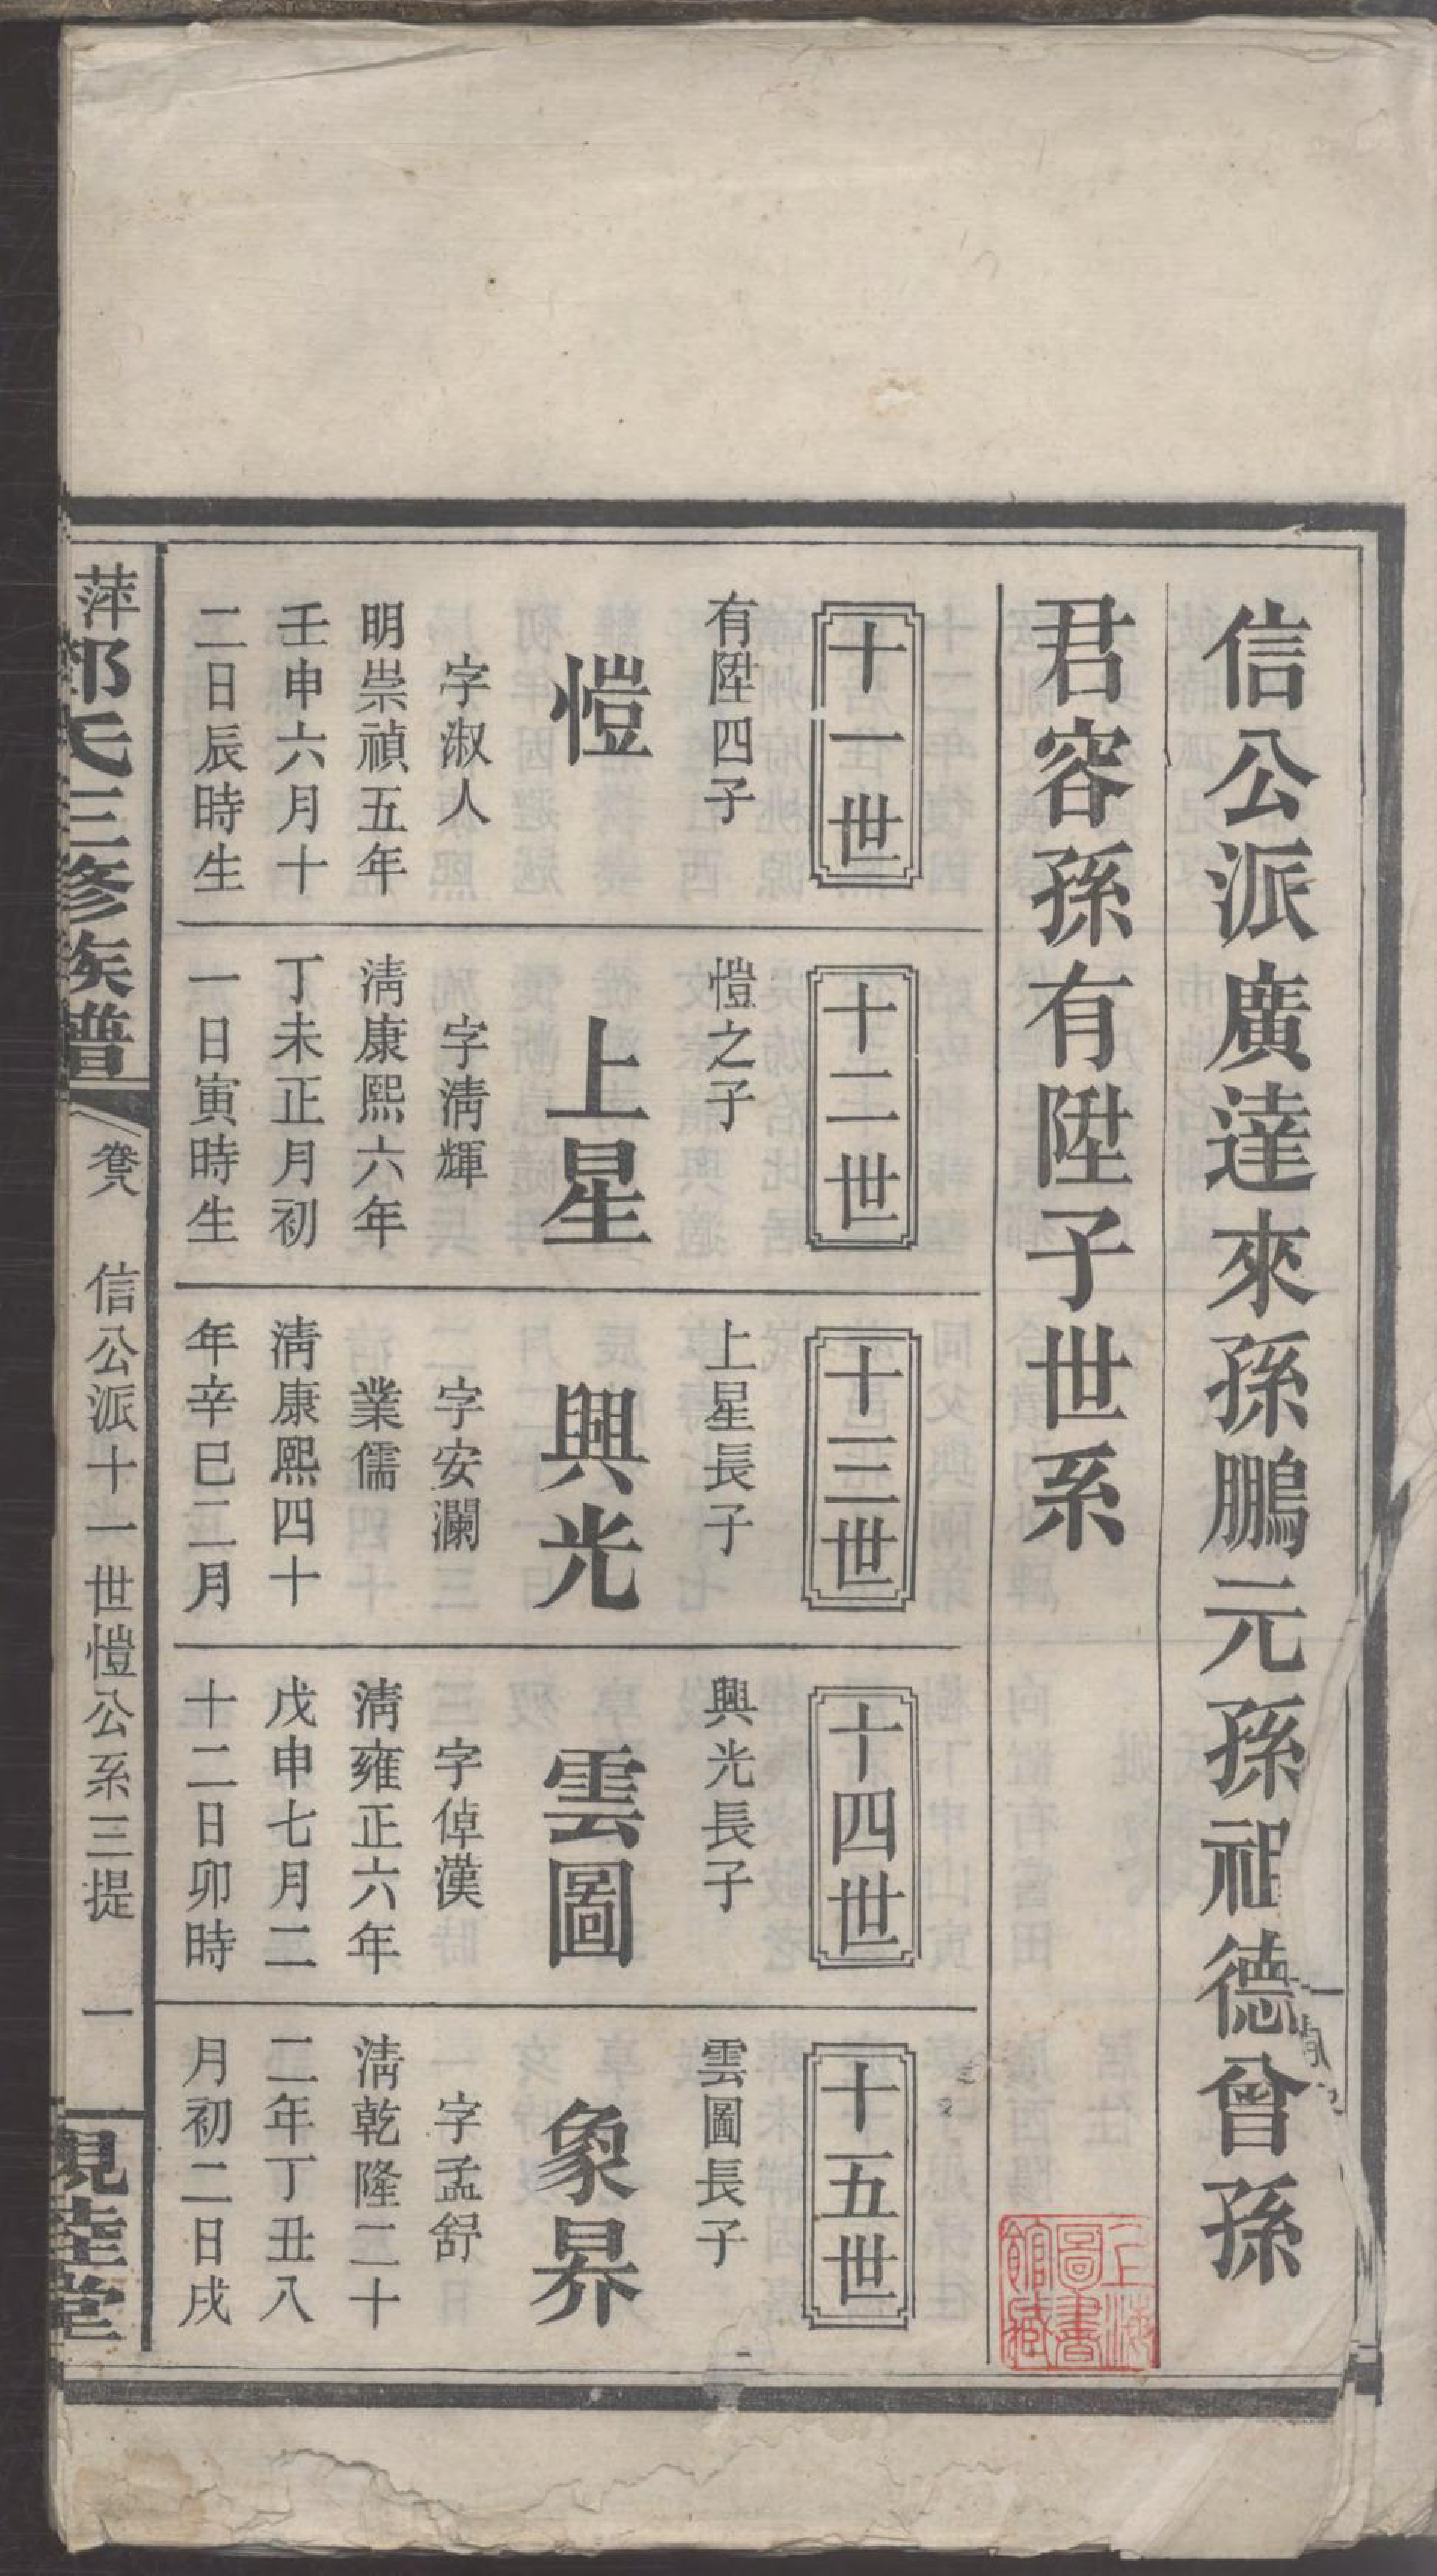 信公派廣達來孫鵬元孫祖德曾孫
君容孫有陞子世系
十一世
有陞四子
愷
字淑人
明崇禎五年
壬申六月十
二日辰時生
十二世
愷之子
上星
字淸輝
淸康熙六年
丁未正月初
一日寅時生
十三世
上星長子
興光
字安瀾
業儒
淸康熙四十
年辛巳二月
十四世
興光長子
雲圖
字倬漢
淸雍正六年
戊申七月二
十二日卯時
十五世
雲圖長子
象昇
字孟舒
淸乾隆二十
二年丁丑八
月初二日戌
萍 氏三修族譜
卷八
信公派十一世愷公系三提
一
堂
上海
圖書
館藏